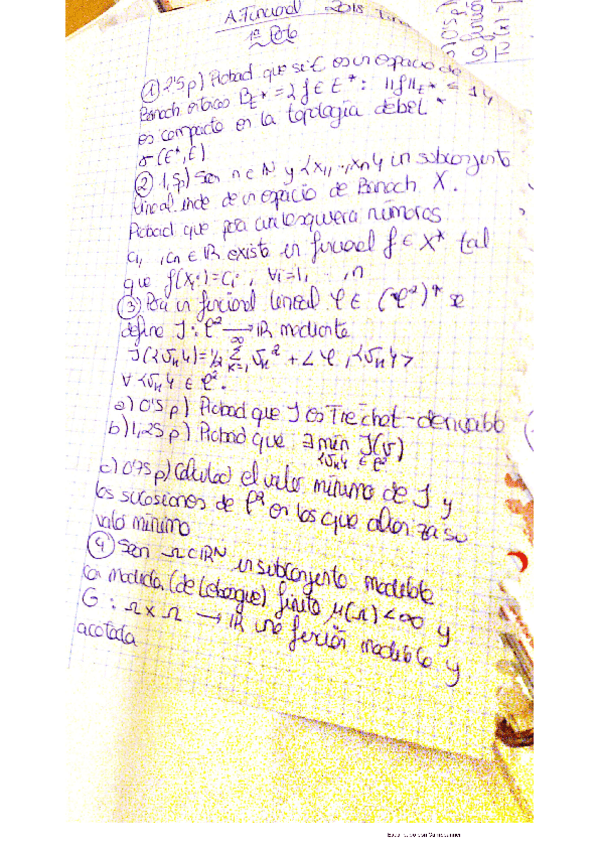 A. Funcional 2018
1ª Parte
① 2'5 p) Probad que si E es un espacio de
Banach entonces B_E* = {f ∈ E*: ||f||_E* ≤ 1}
es compacto en la topología debil *
σ(E*, E)
② 1,5p) Sea n ∈ N y {x1, .., xn} un subconjunto
lineal. inde de un espacio de Banach X.
Probad que para cualesquiera números
c1, , cn ∈ IR existe un funcional f ∈ X* tal
que f(xi) = ci, ∀i=1, , n
③ Para un funcional lineal φ ∈ (ℓ²)* se
define J: ℓ² → IR mediante
J({vn}) = 1/2 ∑_{k=1}^∞ vn² + <φ, {vn}>
∀ {vn} ∈ ℓ².
a) 0'5 p) Probad que J es Frechet-derivable
b) 1,25 p) Probad que ∃ min J(v)
{vn} ∈ ℓ²
c) 0'75 p) Calculad el valor mínimo de J y
las sucesiones de ℓ² en las que alcanza su
valor mínimo
④ Sea Ω ⊂ IRN un subconjunto medible
con medida (de Lebesgue) finita μ(Ω) < ∞ y
G: Ω x Ω → IR una función medible y
acotada